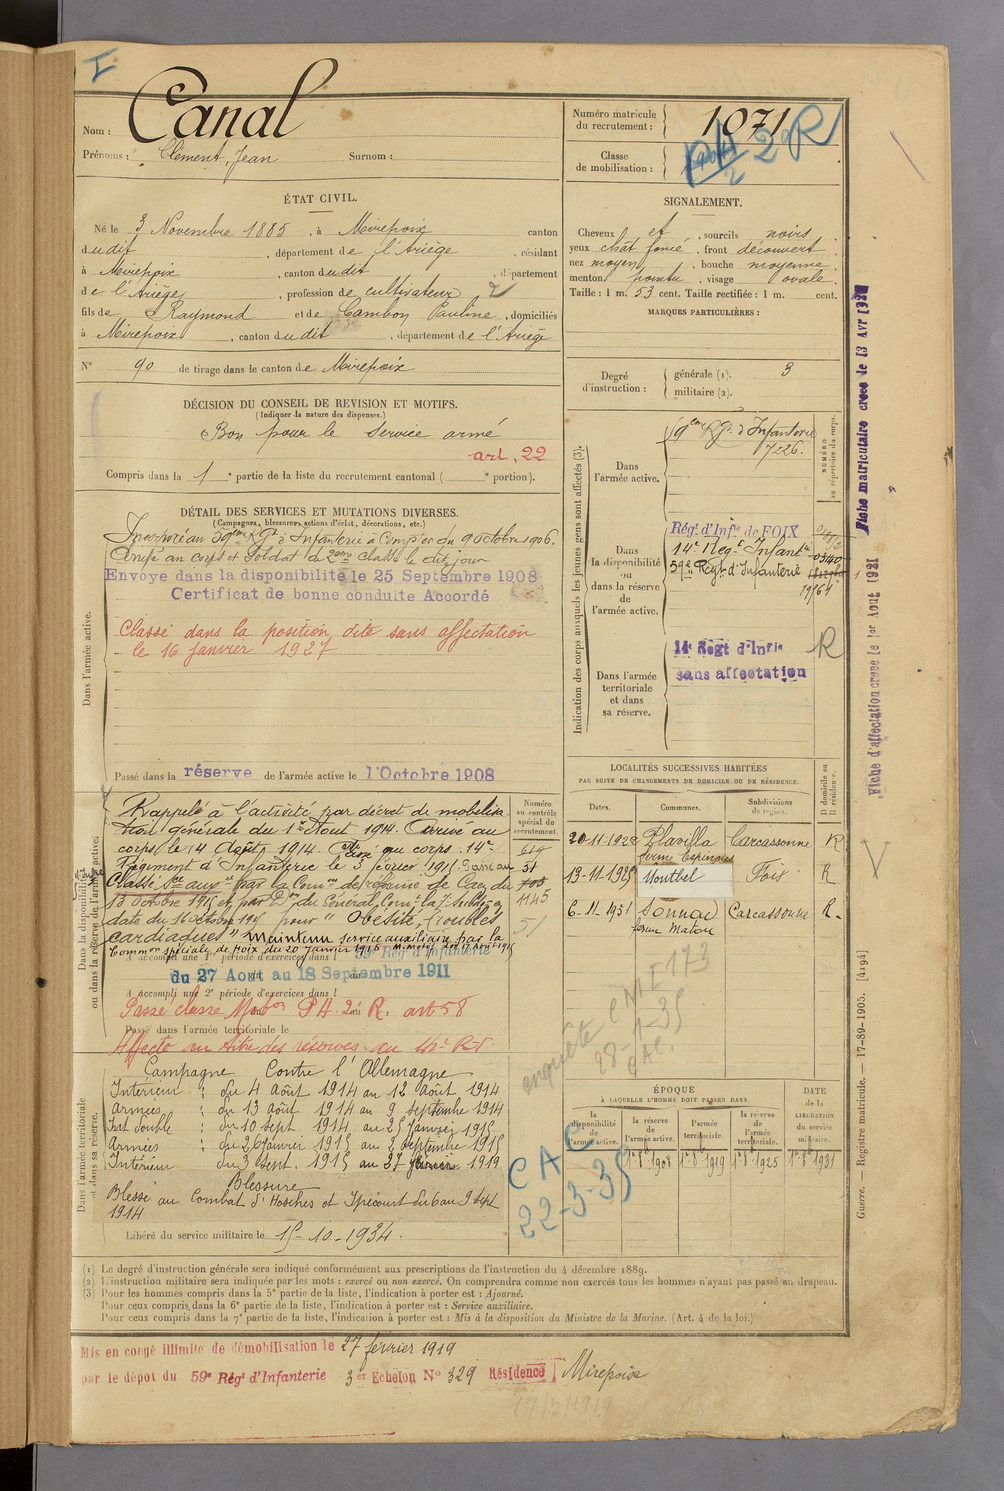 I
Nom : Canal
Prénoms : Clément, Jean Surnom :
Numéro matricule du recrutement : 1071
Classe de mobilisation :
2 R
ÉTAT CIVIL.
Né le 3 Novembre 1885, à Mirepoix canton
dudit, département de l'Ariège, résidant
à Mirepoix, canton dudit, département
de l'Ariège, profession de cultivateur
fils de Raymond et de Cambon Pauline, domiciliés
à Mirepoix, canton dudit, département de l'Ariège
N° 90 de tirage dans le canton de Mirepoix
SIGNALEMENT.
Cheveux et, sourcils noirs
yeux chât foncé, front découvert
nez moyen, bouche moyenne
menton pointu, visage ovale
Taille : 1 m. 53 cent. Taille rectifiée : 1 m. cent.
MARQUES PARTICULIÈRES :
Degré d'instruction : générale (1). 3
militaire (2).
DÉCISION DU CONSEIL DE REVISION ET MOTIFS.
(Indiquer la nature des dispenses.)
Bon pour le service armé
art. 22
Compris dans la 1 e partie de la liste du recrutement cantonal ( e portion).
DÉTAIL DES SERVICES ET MUTATIONS DIVERSES.
(Campagnes, blessures, actions d'éclat, décorations, etc.)
Dans l'armée active.
Incorporé au 59ème Rgt d'Infanterie à Compter du 9 octobre 1906.
Arrivé au corps et Soldat de 2ème classe le dit jour
Envoye dans la disponibilité le 25 Septembre 1908
Certificat de bonne conduite Accordé
Classé dans la position dite sans affectation
le 16 janvier 1927
Passé dans la réserve de l'armée active le 1 Octobre 1908
Indication des corps auxquels les jeunes gens sont affectés (3).
NUMÉRO au répertoire du corps.
Dans l'armée active.
Rgt d'Infanterie
7226.
Dans la disponibilité ou dans la réserve de l'armée active.
Régt d'Infie de FOIX
14e Régt Infantie
59e Régt d'Infanterie
Dans l'armée territoriale et dans sa réserve.
14e Regt d'Infie
sans affectation
R
Dans la disponibilité ou dans la réserve de l'armée active.
Rappelé à l'activité par décret de mobilisa
tion générale du 1er Aout 1914. Arrivé au
corps le 4 Août 1914. Passé au corps 14e
Régiment d'Infanterie le 3 février 1915. Passé au
Classé Sce auxre par la Com de réforme de Caen du
13 Octobre 1915 et par Don du Général Comt la 7e Subdon
date du 16 octobre 1915 pour "Obésité, troubles
cardiaques" Maintenu service auxiliaire par la
Comm spéciale de Foix du 20 janvier 1916
A accompli une 1re période d'exercices dans l 59e Reg d'Infanterie
du 27 Aout au 18 Septembre 1911
A accompli une 2e période d'exercices dans l
Passé classe Mob on PA. 2 R. art 58
Passé dans l'armée territoriale le
Affecté au titre des réserves au
Numéro au contrôle spécial du recrutement.
1145
51
LOCALITÉS SUCCESSIVES HABITÉES
PAR SUITE DE CHANGEMENTS DE DOMICILE OU DE RÉSIDENCE.
Dates. Communes. Subdivisions de région. D domicile ou R résidence.
20-11-1922 Plavilla Carcassonne R
ferme Espinous
13-11-1925 Montbel Foix R
6-11-1931 Sonnac Carcassonne R.
ferme Matou
enquête
28-1-35
Dans l'armée territoriale et dans sa réserve.
Campagne Contre l'Allemagne
Intérieur : du 4 Août 1914 au 12 Août 1914
Armées : du 13 août 1914 au 9 septembre 1914
Int double : du 10 sept 1914 au 25 janvier 1915
Armées : du 26 janvier 1915 au 2 septembre 1915
Intérieur du 3 sept. 1915 au 27 février 1919
Blessure
Blessé au Combat d'Hosches et Ipécourt du 6 au 9 Sept
1914
Libéré du service militaire le 15-10-1934.
CAC
22-3-35
ÉPOQUE
À LAQUELLE L'HOMME DOIT PASSER DANS
la disponibilité de l'armée active. la réserve de l'armée active. l'armée territoriale. la réserve de l'armée territoriale.
DATE de la LIBÉRATION du service militaire.
1er 8 1908 1er 8 1919 1er 8 1925 1er 8 1931
(1) Le degré d'instruction générale sera indiqué conformément aux prescriptions de l'instruction du 4 décembre 1889.
(2) L'instruction militaire sera indiquée par les mots : exercé ou non exercé. On comprendra comme non exercés tous les hommes n'ayant pas passé au drapeau.
(3) Pour les hommes compris dans la 5e partie de la liste, l'indication à porter est : Ajourné.
Pour ceux compris dans la 6e partie de la liste, l'indication à porter est : Service auxiliaire.
Pour ceux compris dans la 7e partie de la liste, l'indication à porter est : Mis à la disposition du Ministre de la Marine. (Art. 4 de la loi.)
Mis en congé illimité de démobilisation le 27 février 1919
par le dépot du 59e Régt d'Infanterie 3er Echelon N° 329 Résidence Mirepoix
Fiche matriculaire creee le 13 Avr 1921
Fiche d'affectation creee le 1er Aout 1921
V
Guerre. — Registre matricule. — 17-89-1905. [4194]